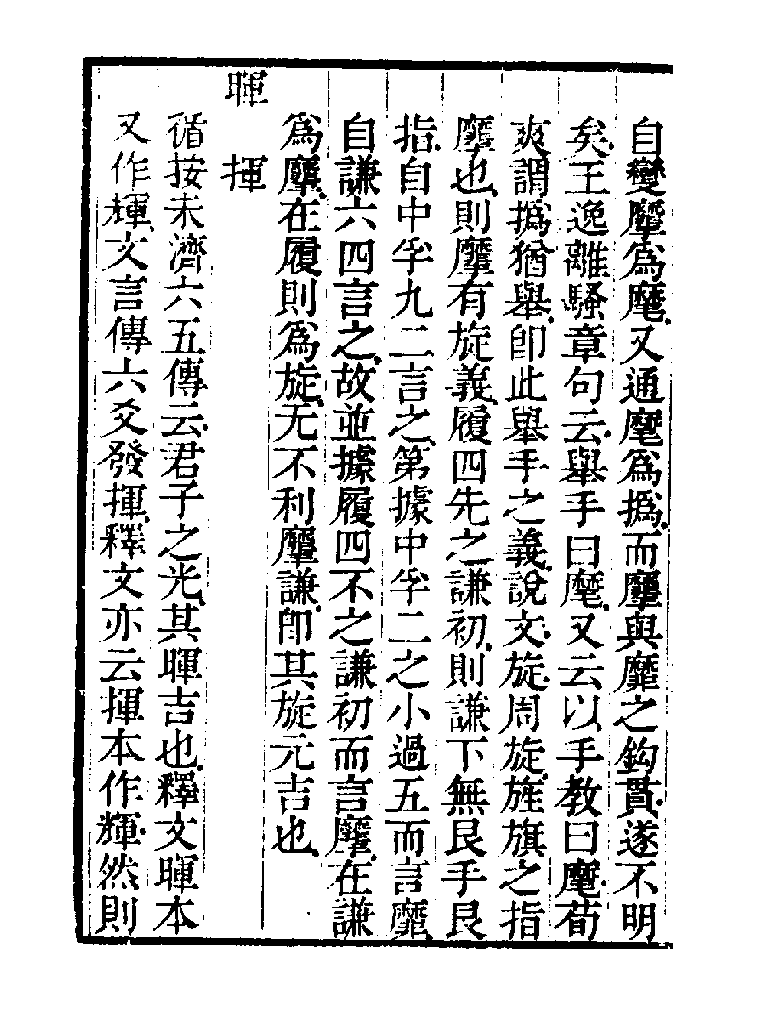 自變𪎮爲麾又通麾爲撝而𪎮與靡之鈎貫遂不明
矣王逸離騷章句云舉手曰麾又云以手教曰麾荀
爽謂撝猶舉卽此舉手之義說文旋周旋旌旗之指
𪎮也則𪎮有旋義履四先之謙初則謙下無艮手艮
指自中孚九二言之第據中孚二之小過五而言靡
自謙六四言之故並據履四不之謙初而言𪎮在謙
爲𪎮在履則爲旋无不利𪎮謙卽其旋元吉也
暉 揮
循按未濟六五傳云君子之光其暉吉也釋文暉本
又作輝文言傳六爻發揮釋文亦云揮本作輝然則